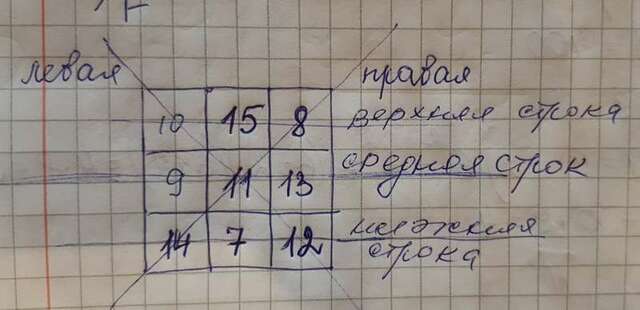 левая
правая
10 15 8 верхняя строка
9 11 13 средняя строк
14 7 12 нижняя
строка